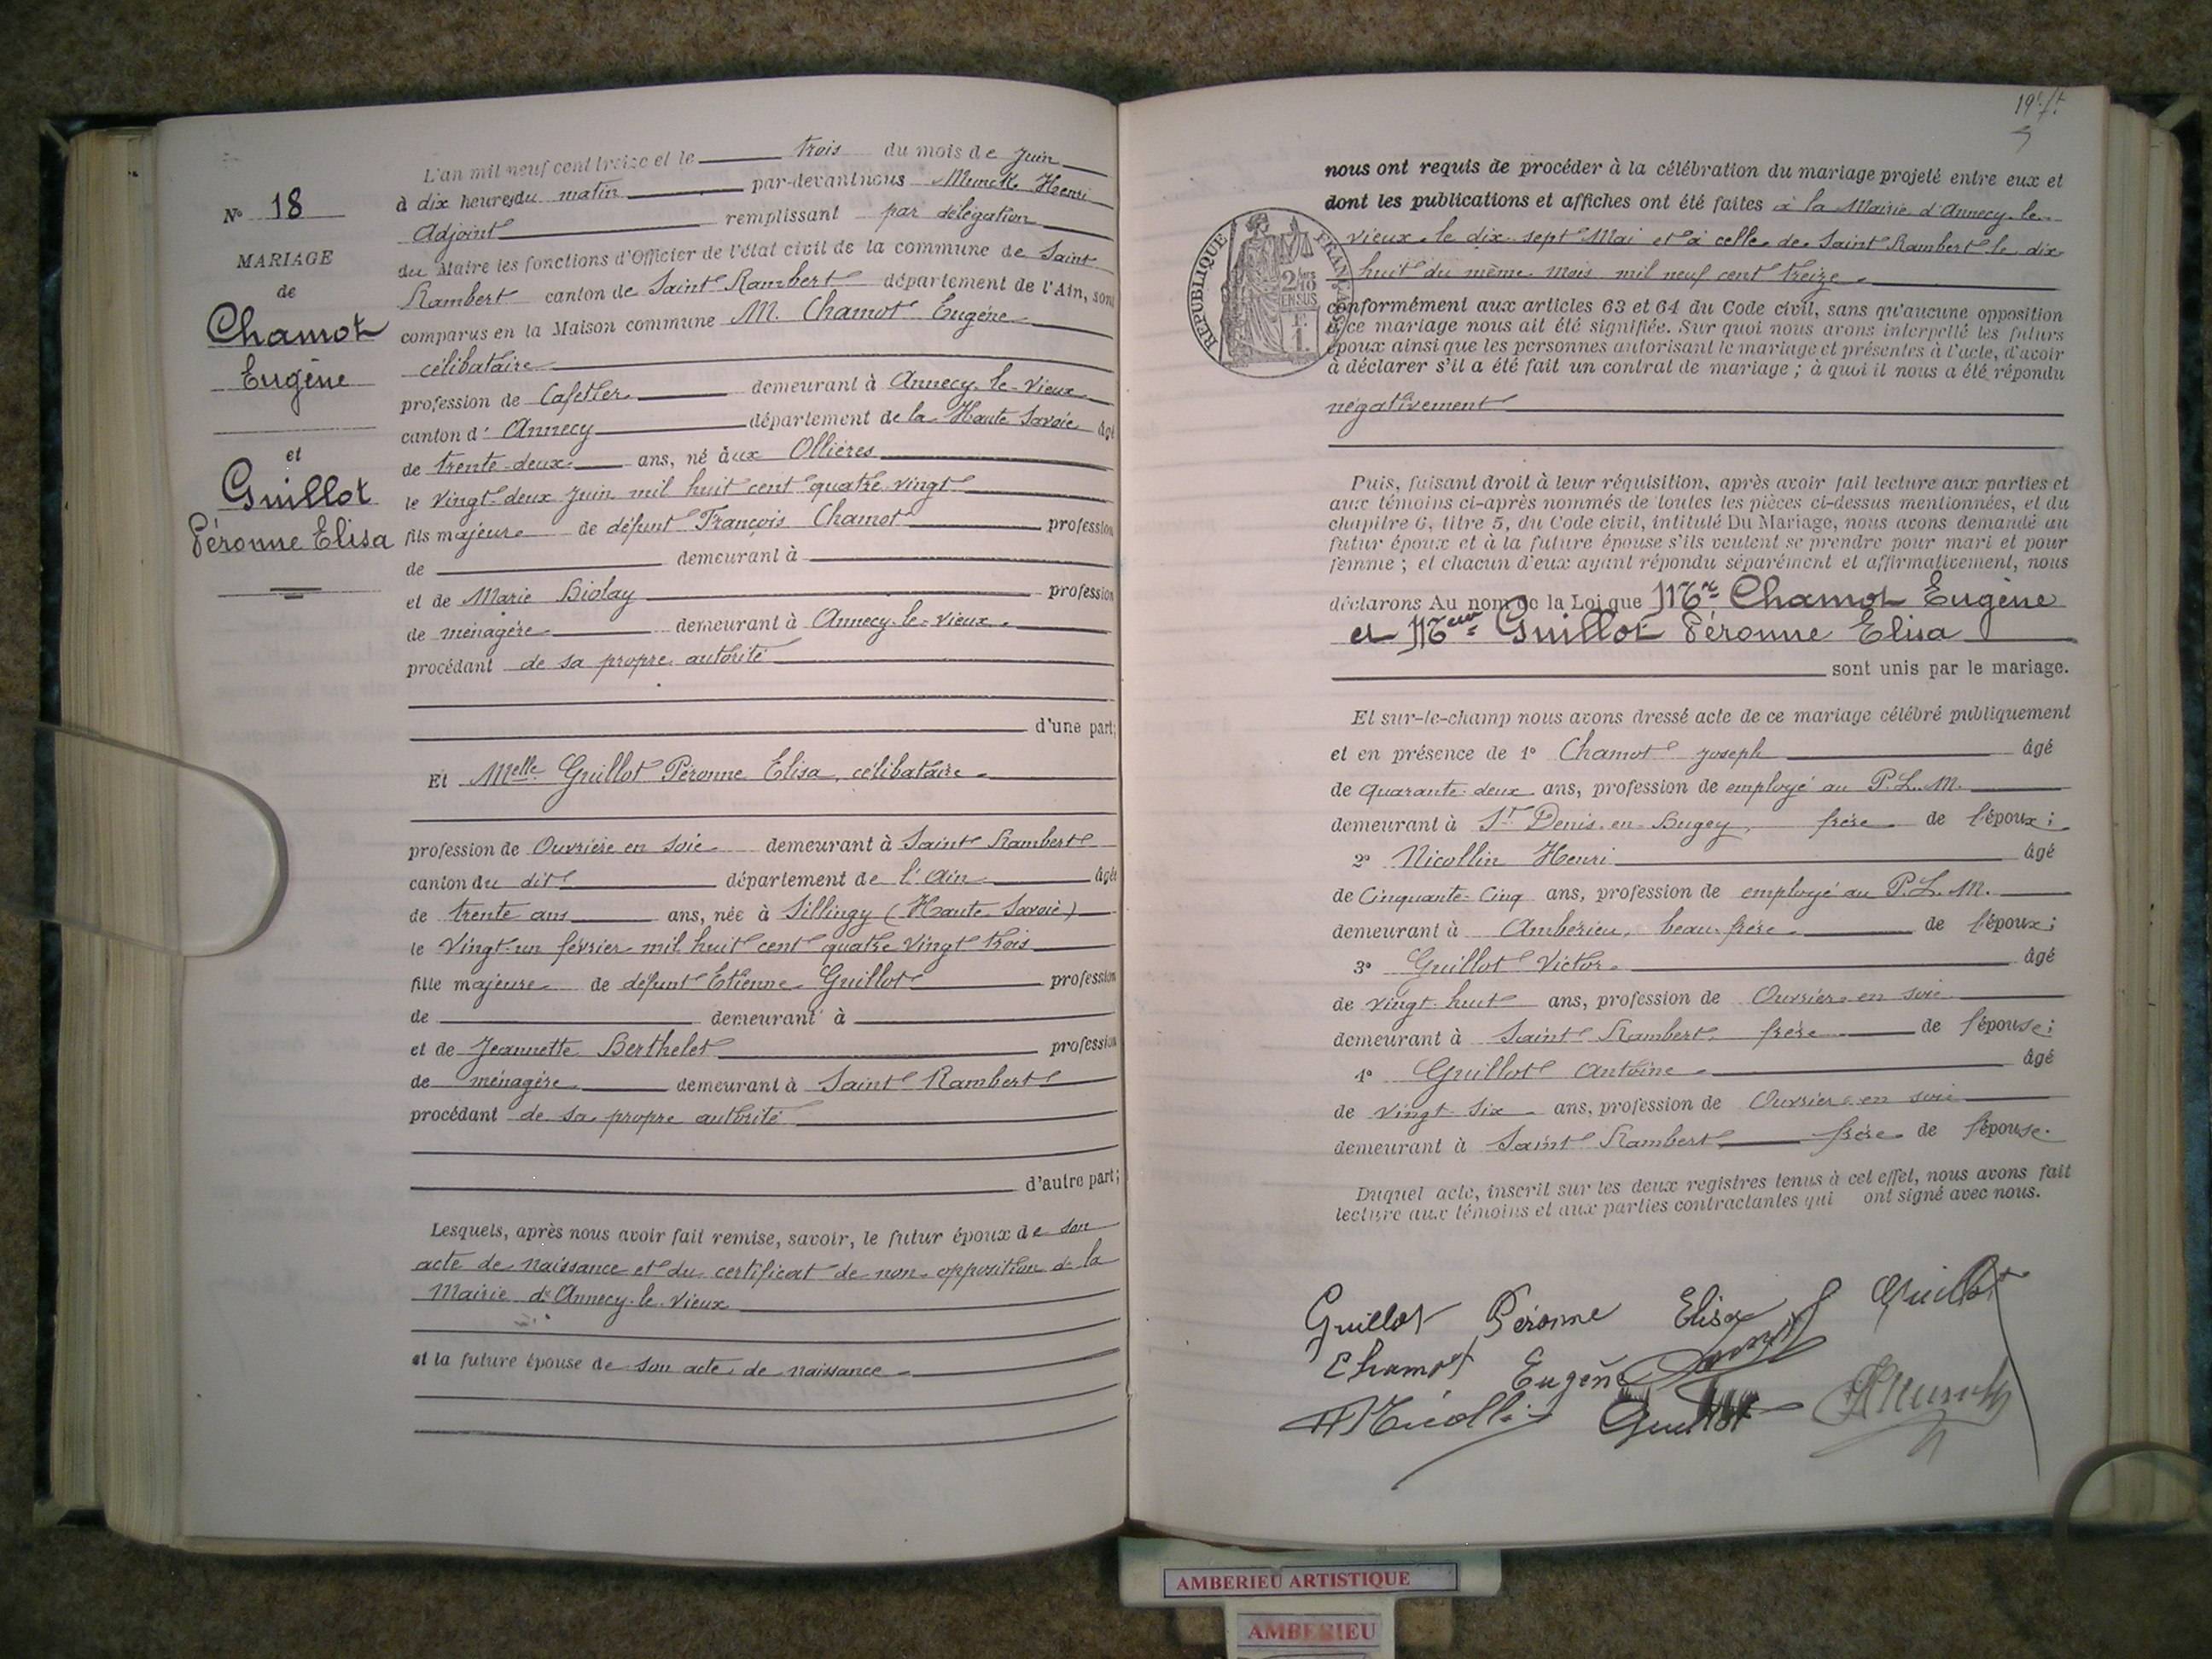 N° 18
MARIAGE
de
Chamot
Eugène
et
Guillot
Péronne Elisa
L'an mil neuf cent treize et le trois du mois de Juin
à dix heures du matin par-devant nous Munck Henri
Adjoint remplissant par délégation
du Maire les fonctions d'Officier de l'état civil de la commune de Saint
Rambert canton de Saint Rambert département de l'Ain, sont
comparus en la Maison commune M. Chamot Eugène
célibataire
profession de Cafetier demeurant à Annecy-le-Vieux
canton d'Annecy département de la Haute Savoie âgé
de trente-deux ans, né aux Ollières
le vingt-deux Juin mil huit cent quatre vingt
fils majeur de défunt François Chamot profession
de demeurant à
et de Marie Biolay profession
de ménagère demeurant à Annecy-le-Vieux
procédant de sa propre autorité
d'une part;
Et Melle Guillot Péronne Elisa, célibataire
profession de Ouvrière en soie demeurant à Saint Rambert
canton du dit département de l'Ain âgée
de trente ans ans, née à Sillingy (Haute-Savoie)
le vingt-un février mil huit cent quatre vingt trois
fille majeure de défunt Etienne Guillot profession
de demeurant à
et de Jeannette Berthelet profession
de ménagère demeurant à Saint Rambert
procédant de sa propre autorité
d'autre part;
Lesquels, après nous avoir fait remise, savoir, le futur époux de son
acte de naissance et du certificat de non-opposition de la
Mairie d'Annecy-le-Vieux
et la future épouse de son acte de naissance
nous ont requis de procéder à la célébration du mariage projeté entre eux et
dont les publications et affiches ont été faites à la Mairie d'Annecy-le-
Vieux le dix-sept Mai et à celle de Saint Rambert le dix
huit du même mois mil neuf cent treize
RÉPUBLIQUE FRANÇAISE
conformément aux articles 63 et 64 du Code civil, sans qu'aucune opposition
à ce mariage nous ait été signifiée. Sur quoi nous avons interpellé les futurs
époux ainsi que les personnes autorisant le mariage et présentes à l'acte, d'avoir
à déclarer s'il a été fait un contrat de mariage ; à quoi il nous a été répondu
négativement
Puis, faisant droit à leur réquisition, après avoir fait lecture aux parties et
aux témoins ci-après nommés de toutes les pièces ci-dessus mentionnées, et du
chapitre 6, titre 5, du Code civil, intitulé Du Mariage, nous avons demandé au
futur époux et à la future épouse s'ils veulent se prendre pour mari et pour
femme ; et chacun d'eux ayant répondu séparément et affirmativement, nous
déclarons Au nom de la Loi que Mr Chamot Eugène
et Guillot Péronne Elisa
sont unis par le mariage.
Et sur-le-champ nous avons dressé acte de ce mariage célébré publiquement
et en présence de 1° Chamot Joseph âgé
de quarante-deux ans, profession de employé au P.L.M.
demeurant à St Denis-en-Bugey, frère de l'époux;
2° Nicollin Henri âgé
de Cinquante-Cinq ans, profession de employé au P.L.M.
demeurant à Ambérieu, beau-frère de l'époux;
3° Guillot Victor âgé
de vingt-huit ans, profession de Ouvrier en soie
demeurant à Saint Rambert, frère de l'épouse;
4° Guillot Antoine âgé
de vingt-six ans, profession de Ouvrier en soie
demeurant à Saint Rambert, frère de l'épouse.
Duquel acte, inscrit sur les deux registres tenus à cet effet, nous avons fait
lecture aux témoins et aux parties contractantes qui ont signé avec nous.
Guillot Péronne Elisa Guillot
Chamot Eugène
Nicollin Guillot
AMBERIEU ARTISTIQUE
AMBERIEU